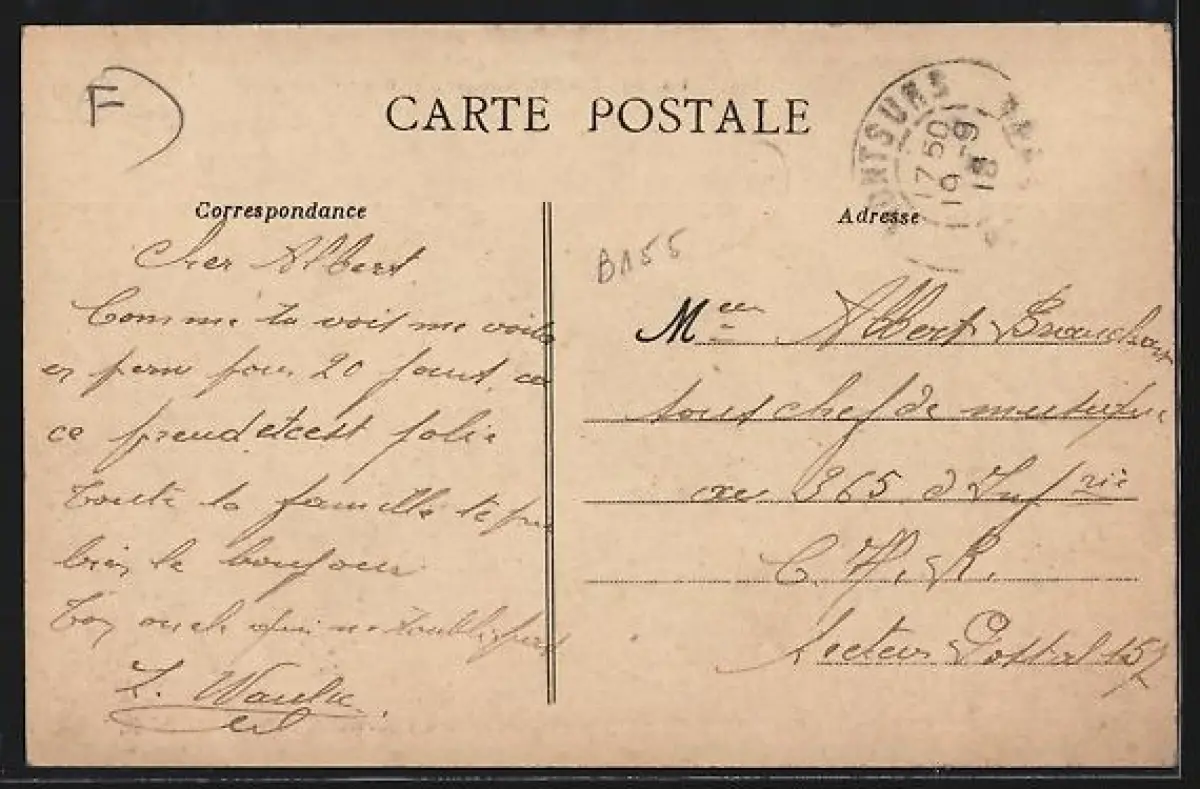 F
CARTE POSTALE
MONTSURS
17 50
19 -9
18
Correspondance
Adresse
B155
Cher Albert
Comme tu voit me voila
en perm pour 20 jours, ca
ce prend etcest jolie
Toute la famille te
bien le bonjour
Ton oncle qui
Mr Albert
sous chef de musique
au 365 d Infrie
C. H. R.
Secteur Postal 157